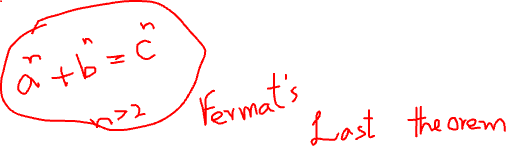 aⁿ + bⁿ = cⁿ
n>2
Fermat's Last theorem